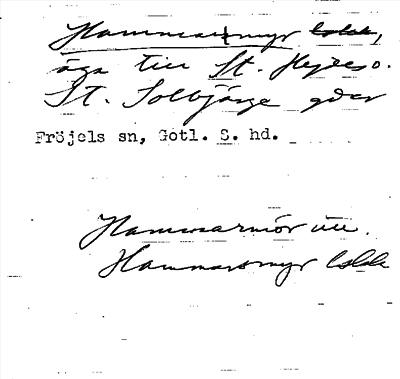 Hammarsmyr lslde,
äga till St. Hejdes o.
St. Solbjärge gdar
Fröjels sn, Gotl. S. hd.
Hammarmör utt.
Hammarsmyr